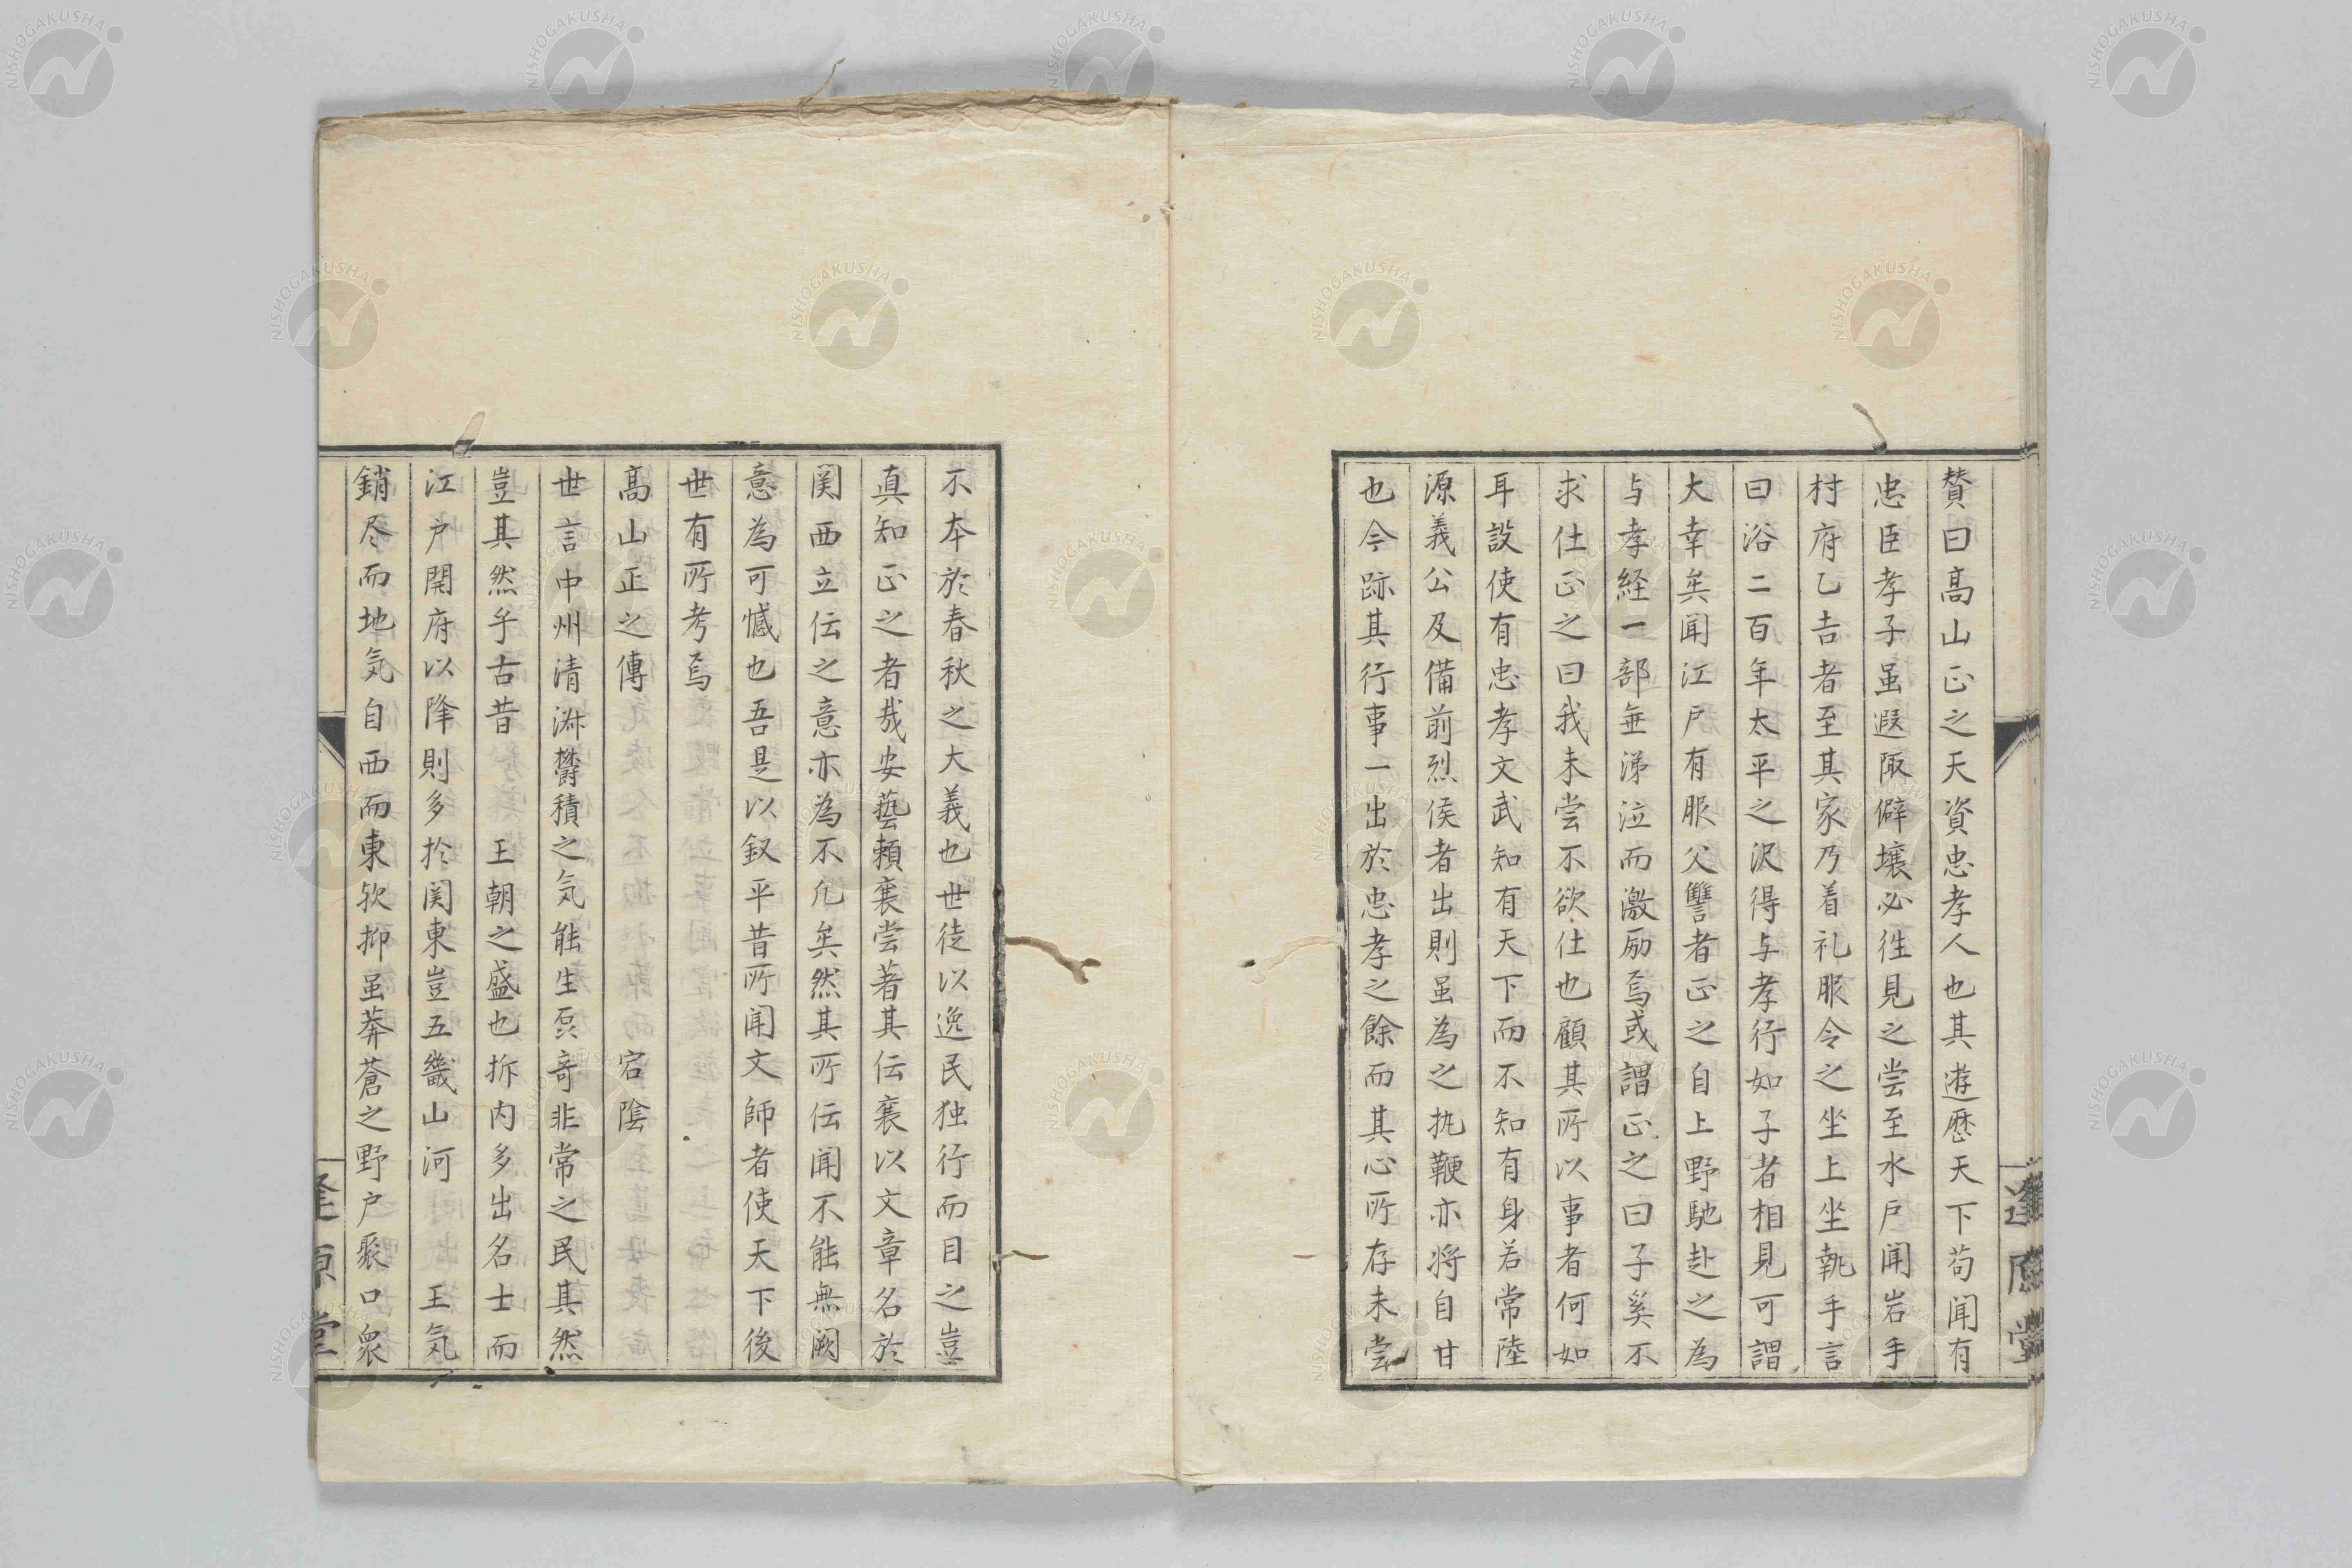 賛曰高山正之天資忠孝人也其遊歴天下苟聞有
忠臣孝子虽遐陬僻壤必徃見之尝至水戸聞岩手
村府乙吉者至其家乃着礼服令之坐上坐執手言
曰浴二百年太平之沢得与孝行如子者相見可謂
大幸矣聞江戸有服父讐者正之自上野馳赴之為
与孝経一部無涕泣而激励焉或謂正之曰子奚不
求仕正之曰我未尝不欲仕也顧其所以事者何如
耳設使有忠孝文武知有天下而不知有身若常陸
源義公及備前烈侯者出則虽為之执鞭亦将自甘
也今跡其行事一出於忠孝之餘而其心所存未尝
不本於春秋之大義也世徒以逸民独行而目之豈
真知正之者哉安藝頼襄尝著其伝襄以文章名於
関西立伝之意亦為不凡矣然其所伝聞不能無闕
意為可憾也吾是以叙平昔所聞文師者使天下後
世有所考焉
高山正之傳 宕陰
世言中州清淋欝積之気能生瓌奇非常之民其然
豈其然乎古昔 王朝之盛也拆内多出名士而
江戸開府以降則多於関東豈五畿山河 王気
銷尽而地気自西而東欤抑虽莽蒼之野戸聚口衆
逢原堂
逢原堂
NISHOGAKUSHA